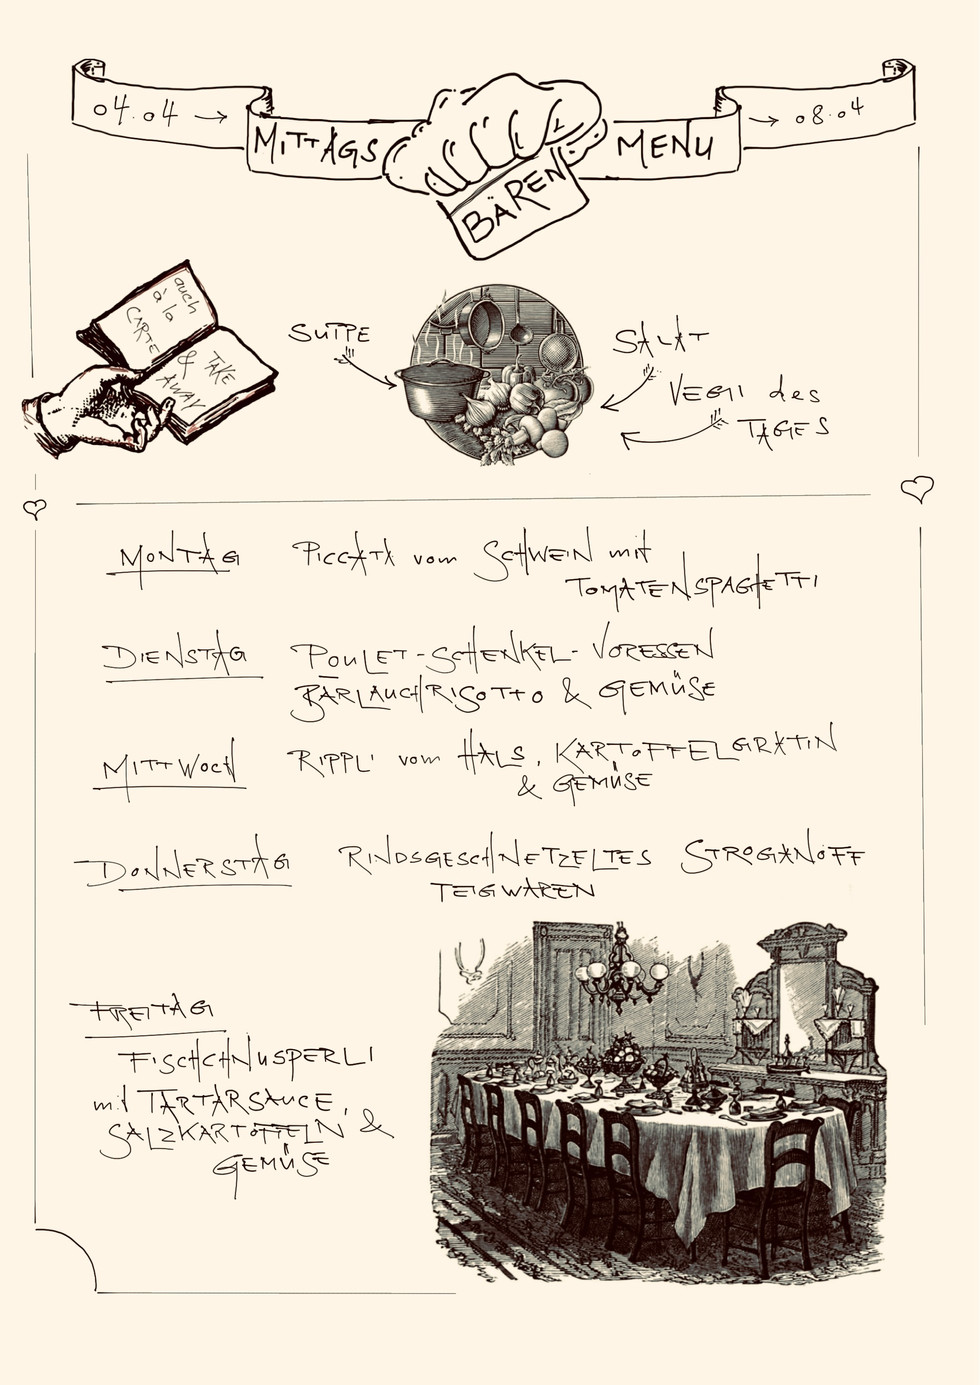 04.04 →
MITTAGS
MENU
→ 08.04
BÄREN
auch
à la
CARTE
&
TAKE
AWAY
SUPPE
SALAT
VEGI des
TAGES
MONTAG
PICCATA vom SCHWEIN mit
TOMATENSPAGHETTI
DIENSTAG
POULET-SCHENKEL-VORESSEN
BÄRLAUCHRISOTTO & GEMÜSE
MITTWOCH
RIPPLI vom HALS, KARTOFFELGRATIN
& GEMÜSE
DONNERSTAG
RINDSGESCHNETZELTES STROGANOFF
TEIGWAREN
FREITAG
FISCHCHNUSPERLI
mit TARTARSAUCE,
SALZKARTOFFELN &
GEMÜSE